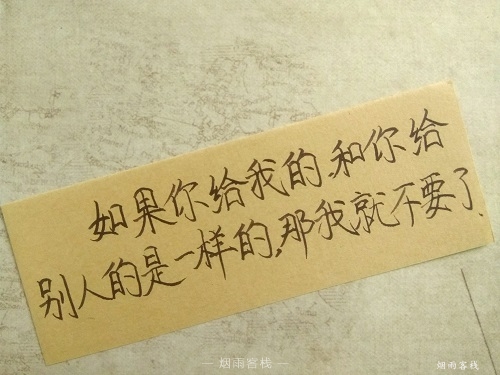 如果你给我的,和你给
别人的是一样的,那我就不要了.
— 烟雨客栈 —
烟雨客栈